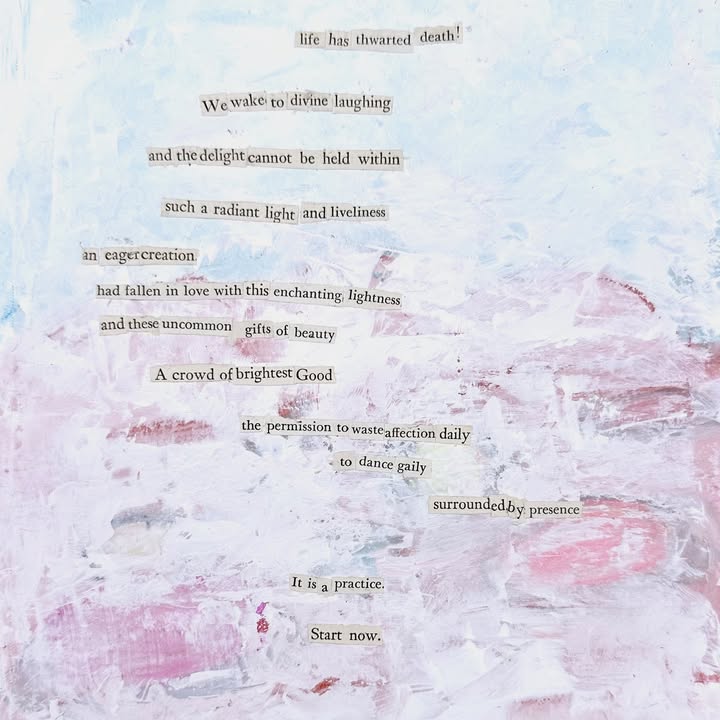 life has thwarted death!
We wake to divine laughing
and the delight cannot be held within
such a radiant light and liveliness
an eager creation
had fallen in love with this enchanting lightness
and these uncommon gifts of beauty
A crowd of brightest Good
the permission to waste affection daily
to dance gaily
surrounded by presence
It is a practice.
Start now.